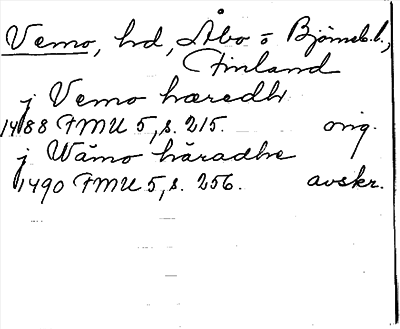 Vemo, hd, Åbo o Björneb. l.,
Finland
j Vemo hæredh
1488 FMU 5, s. 215. orig.
j Wämo häradhe
1490 FMU 5, s. 256. avskr.